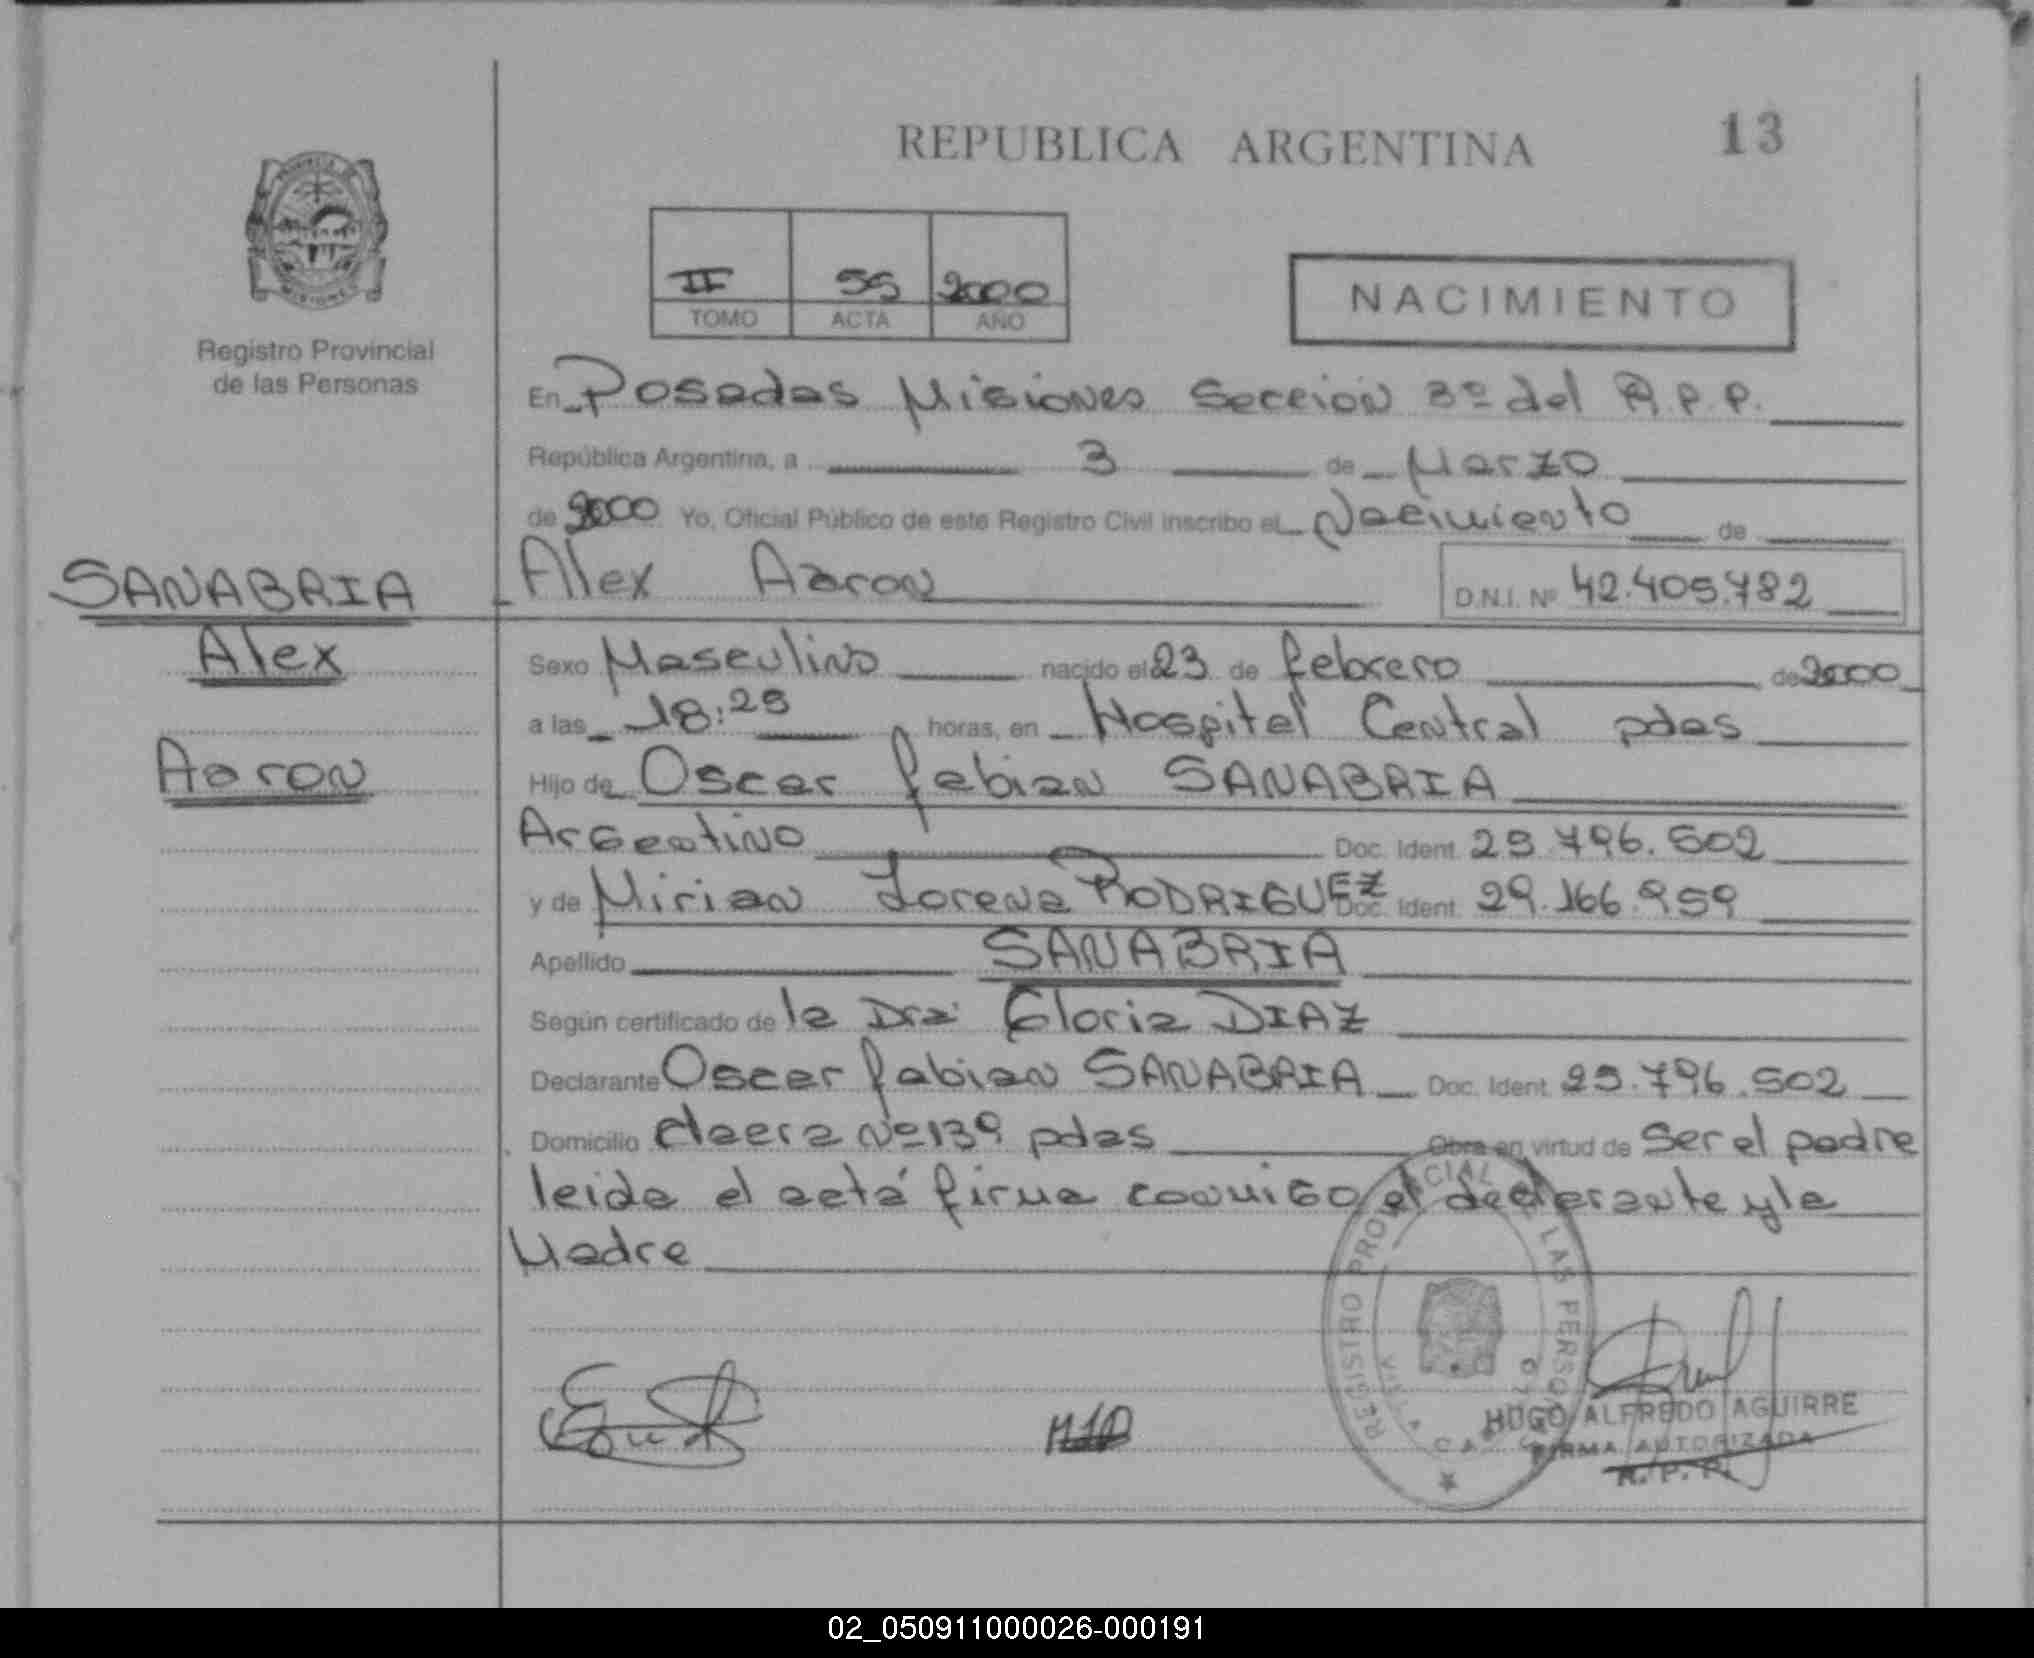 REPUBLICA ARGENTINA
13
PROVINCIA DE
MISIONES
Registro Provincial
de las Personas
II 55 2000
TOMO ACTA AÑO
NACIMIENTO
En Posadas Misiones Seccion 3º del R.P.P.
República Argentina, a 3 de Marzo
de 2000 Yo, Oficial Público de este Registro Civil inscribo el Nacimiento de
SANABRIA
Alex
Aaron
Alex Aaron D.N.I. Nº 42.405.782
Sexo Masculino nacido el 23 de febrero de 2000
a las 18:25 horas, en Hospital Central pdas
Hijo de Oscar fabian SANABRIA
Argentino Doc. Ident. 25.796.502
y de Mirian Lorena RODRIGUEZ Doc. Ident. 29.166.959
Apellido SANABRIA
Según certificado de la Dra Gloria DIAZ
Declarante Oscar fabian SANABRIA Doc. Ident. 25.796.502
Domicilio Nº 139 pdas Obra en virtud de Ser el padre
leida el acta firma conmigo el declarante y la
Madre
REGISTRO PROVINCIAL DE LAS PERSONAS
HUGO ALFREDO AGUIRRE
FIRMA AUTORIZADA
R. P. P.
02_050911000026-000191